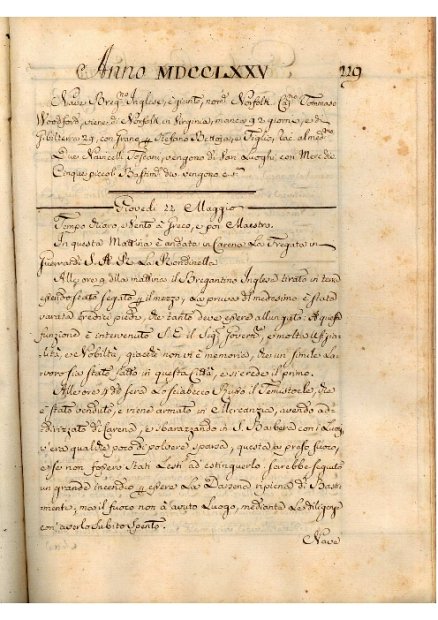 Anno MDCCLXXV 229
Nave Breg.no Inglese, è giunto, nom.o Norfolk Cap.no Tommaso
Woodford, viene di Norfolk in Virginia, manca 92 giorni, e di
Gibilterra 29, con Grano p Stefano Bettoia, e Figlio, rac. al med.mo
Due Navicelli Toscani, vengono di Van Luoghi, con Mercdie
Cinque piccoli Bastim.ti div. vengono e s.a
Giovedì 22 Maggio
Tempo chiaro, e Vento à Greco, e poi Maestro.
In questa Mattina è andata in Carena La Fregata in
Guerra di S. A. R. La Rondinella
Alle ore 9 di la mattina il Bregantino Inglese tirato in terra
essendo stato segato p il mezzo, La prima di medesimo è stata
varata tredici piedi, che tanto deve essere allungato: A questa
funzione è intervenuto S. E. il Sig.r Govern.re, e molta Uffizia-
lità, e Nobiltà, giacchè non vi è memoria, che un simile La-
voro sia stato fatto in questa Città, e si crede il primo.
Alle ore 4 di sera Lo Sciabecco Russo il Temistocle, che
è stato venduto, e viene armato in Mercanzia, avendo ad-
dirizzato di Carena, e sbarazzando in S. Barbera con i Lumi
v'era qualche poco di polvere sparsa, questa à preso fuoco,
e se non fossero stati Lesti ad estinguerlo, sarebbe seguito
un grande incendio p essere La Darsena ripiena di Basti-
menti, ma il fuoco non à avuto Luogo, mediante Le diligenze
con averlo subito spento.
Nave